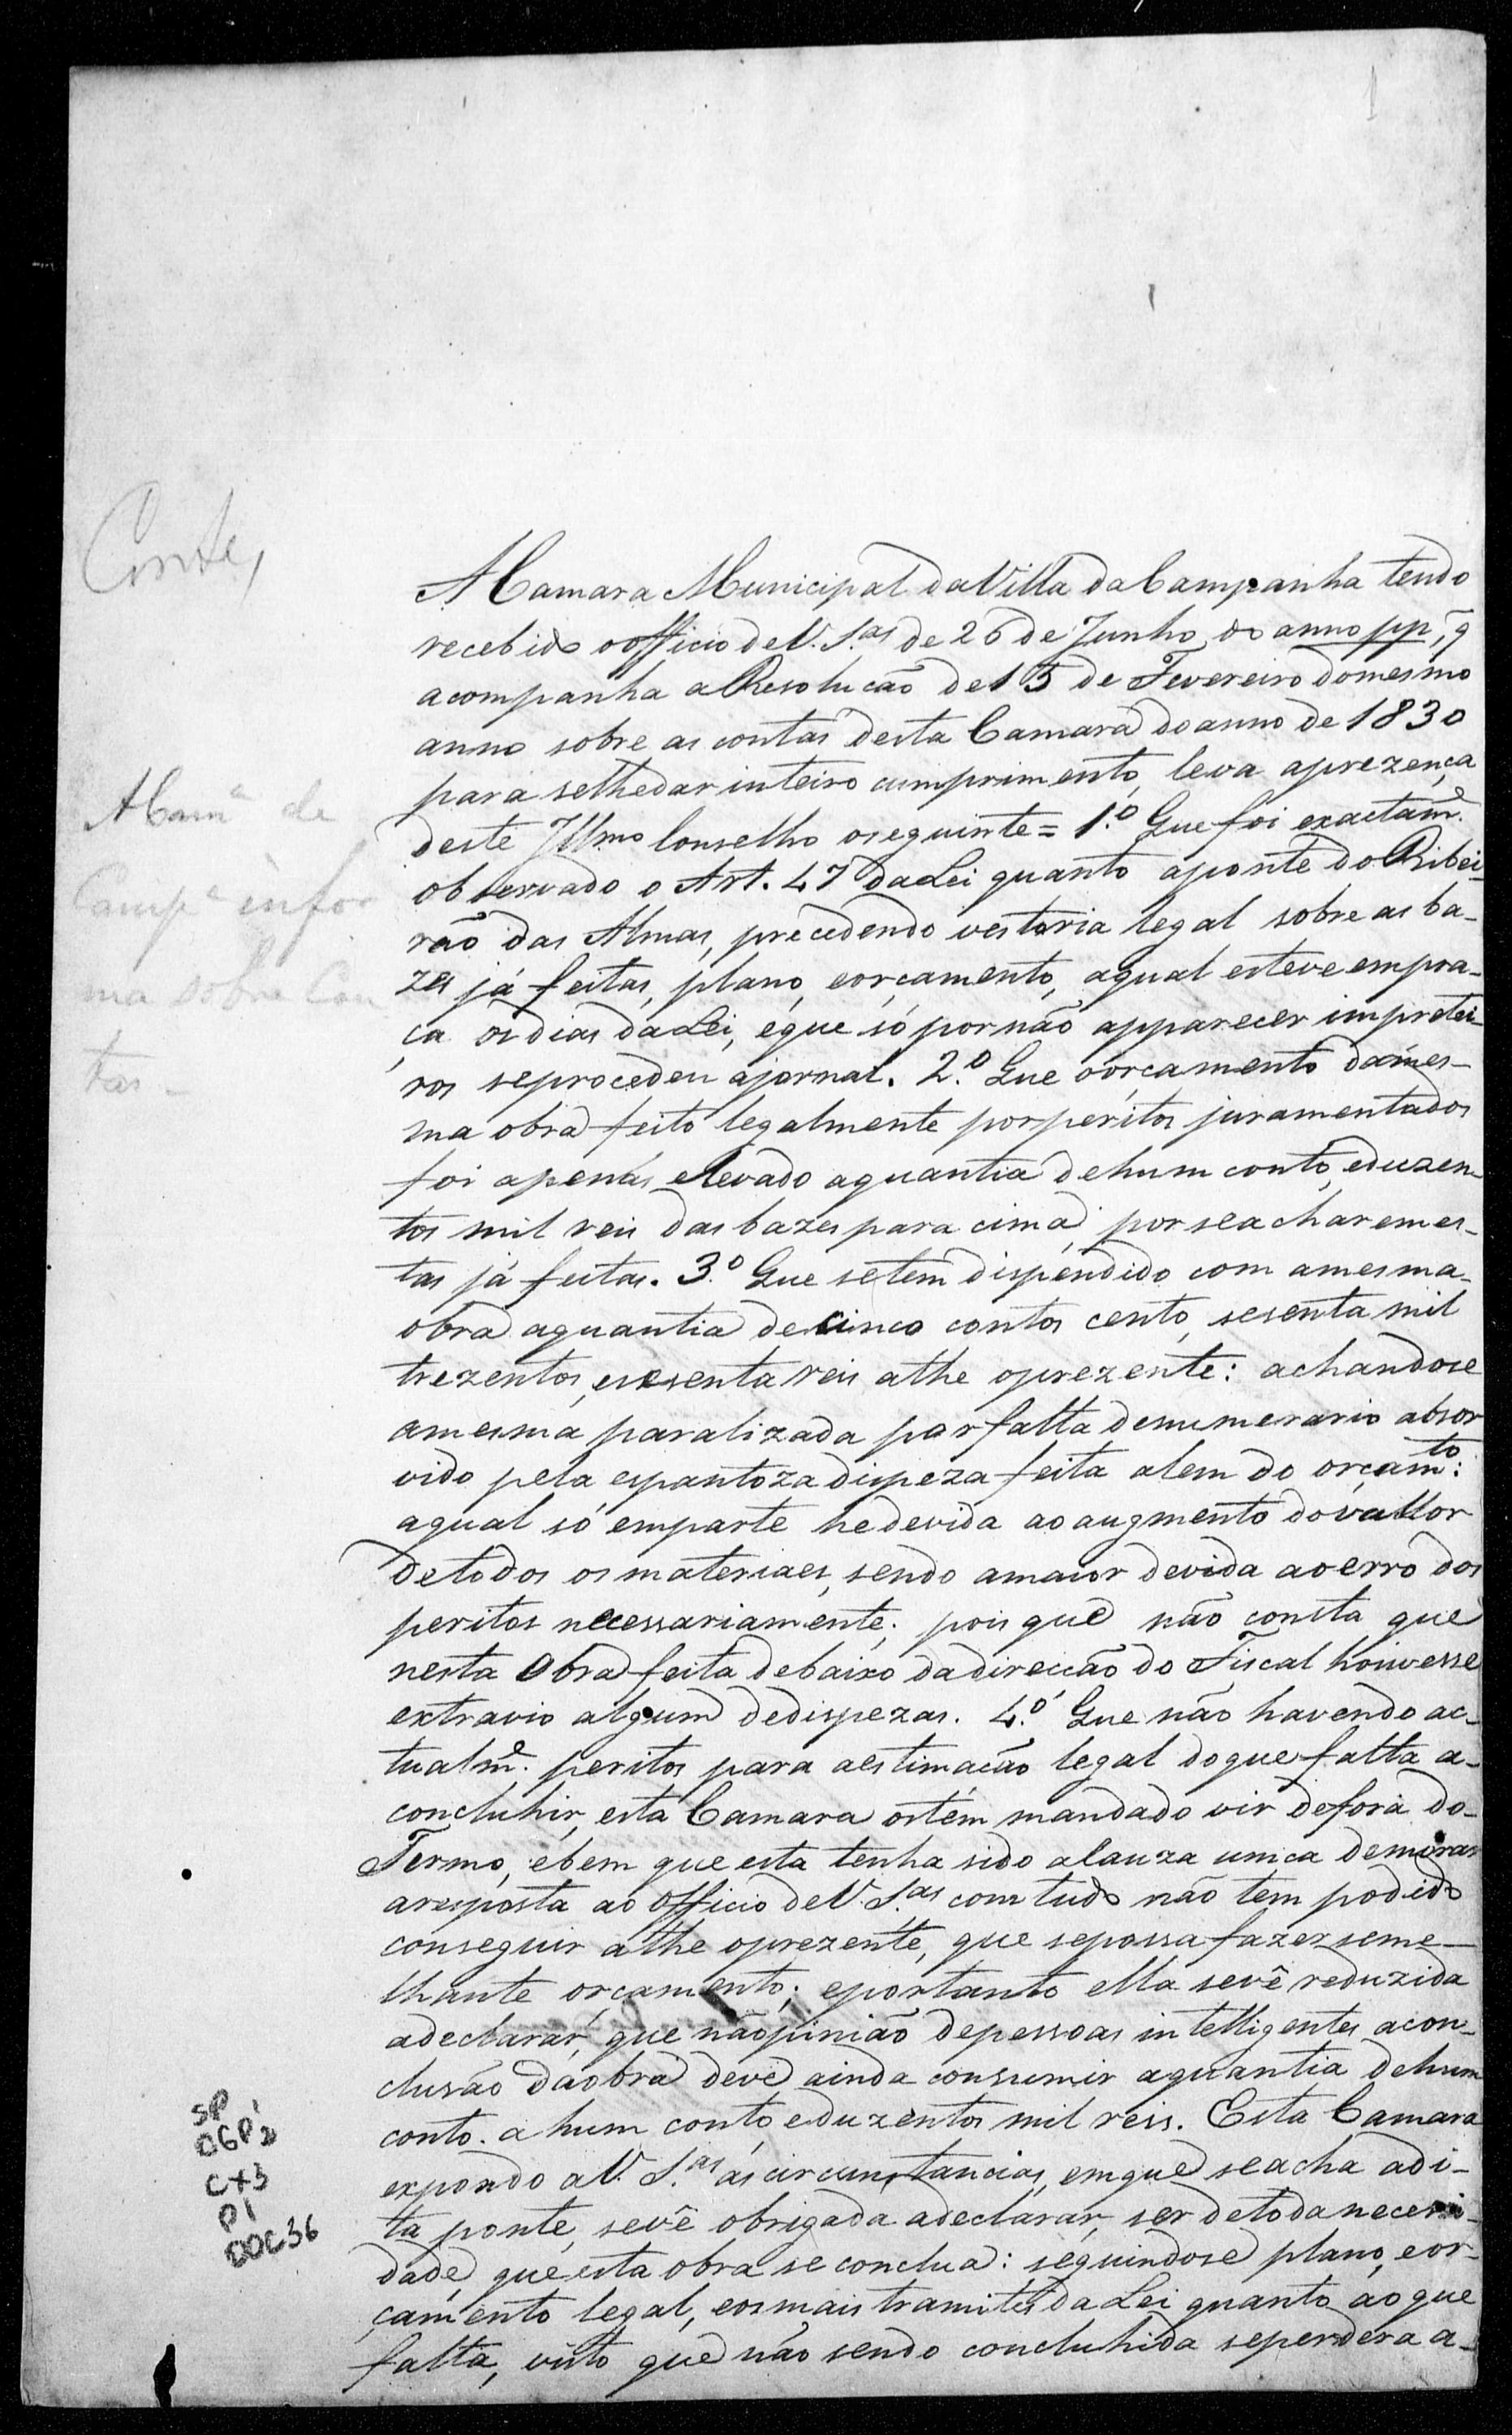 Conte,
A Camara Municipal da Villa da Campanha tendo
recebido o officio de V. S.as de 26 de Junho do anno pp, q̃
acompanha a Resolucão de 15 de Fevereiro do mesmo
anno sobre as contas desta Camara do anno de 1830
para se lhe dar inteiro cumprimento, leva a prezença
deste Illmo Conselho o seguinte = 1.º Que foi exactam.e
observado o Art. 47 da Lei quanto a ponte do Ribei-
rão das Almas, precedendo vestoria legal sobre as ba-
zes já feitas, plano, e orçamento, a qual esteve em pra-
ça os dias da Lei, e que só por não apparecer impretei-
ros se procedeu a jornal. 2.º Que o orçamento da mes-
ma obra feito legalmente por peritos juramentados
foi apenas elevado a quantia de hum conto, e duzen-
tos mil reis das bazes para cima, por se acharem es-
tas já feitas. 3.º Que se tem dispendido com a mesma
obra a quantia de cinco contos cento, sesenta mil
trezentos, e sesenta reis athe o prezente: achandose
a mesma paralizada por falta de numerario absor
vido pela espantoza dispeza feita alem do orçam.to:
a qual só em parte he devida ao augmento do vallor
de todos os materiaes, sendo a maior devida ao erro dos
peritos necessariamente; pois que não consta que
nesta Obra feita debaixo da direcção do Fiscal houvesse
extravio algum de dispezas. 4.º Que não havendo ac-
tualm.e peritos para a estimação legal do que falta a-
concluhir, esta Camara os tem mandado vir de fora do-
Termo, e bem que esta tenha sido a cauza unica de morar
a resposta ao Officio de V. S.as com tudo não tem podido
conseguir athe o prezente, que se possa fazer seme-
lhante orçamento; e portanto ella se vê reduzida
a declarar, que na opinião de pessoas intelligentes a con-
clusão da obra deve ainda consumir a quantia de hum
conto. a hum conto e duzentos mil reis. Esta Camara
expondo a V. S.as as circunstancias, em que se acha a di-
ta ponte, se vê obrigada a declarar, ser de toda necessi-
dade, que esta obra se conclua: seguindose plano, e or-
çamento legal, e os mais tramites da Lei quanto ao que
falta, visto que não sendo concluhida se perdera a-
A Cam.a de
Camp.a infor
ma sobre Con
tas -
SP
CX3
P1
DOC36